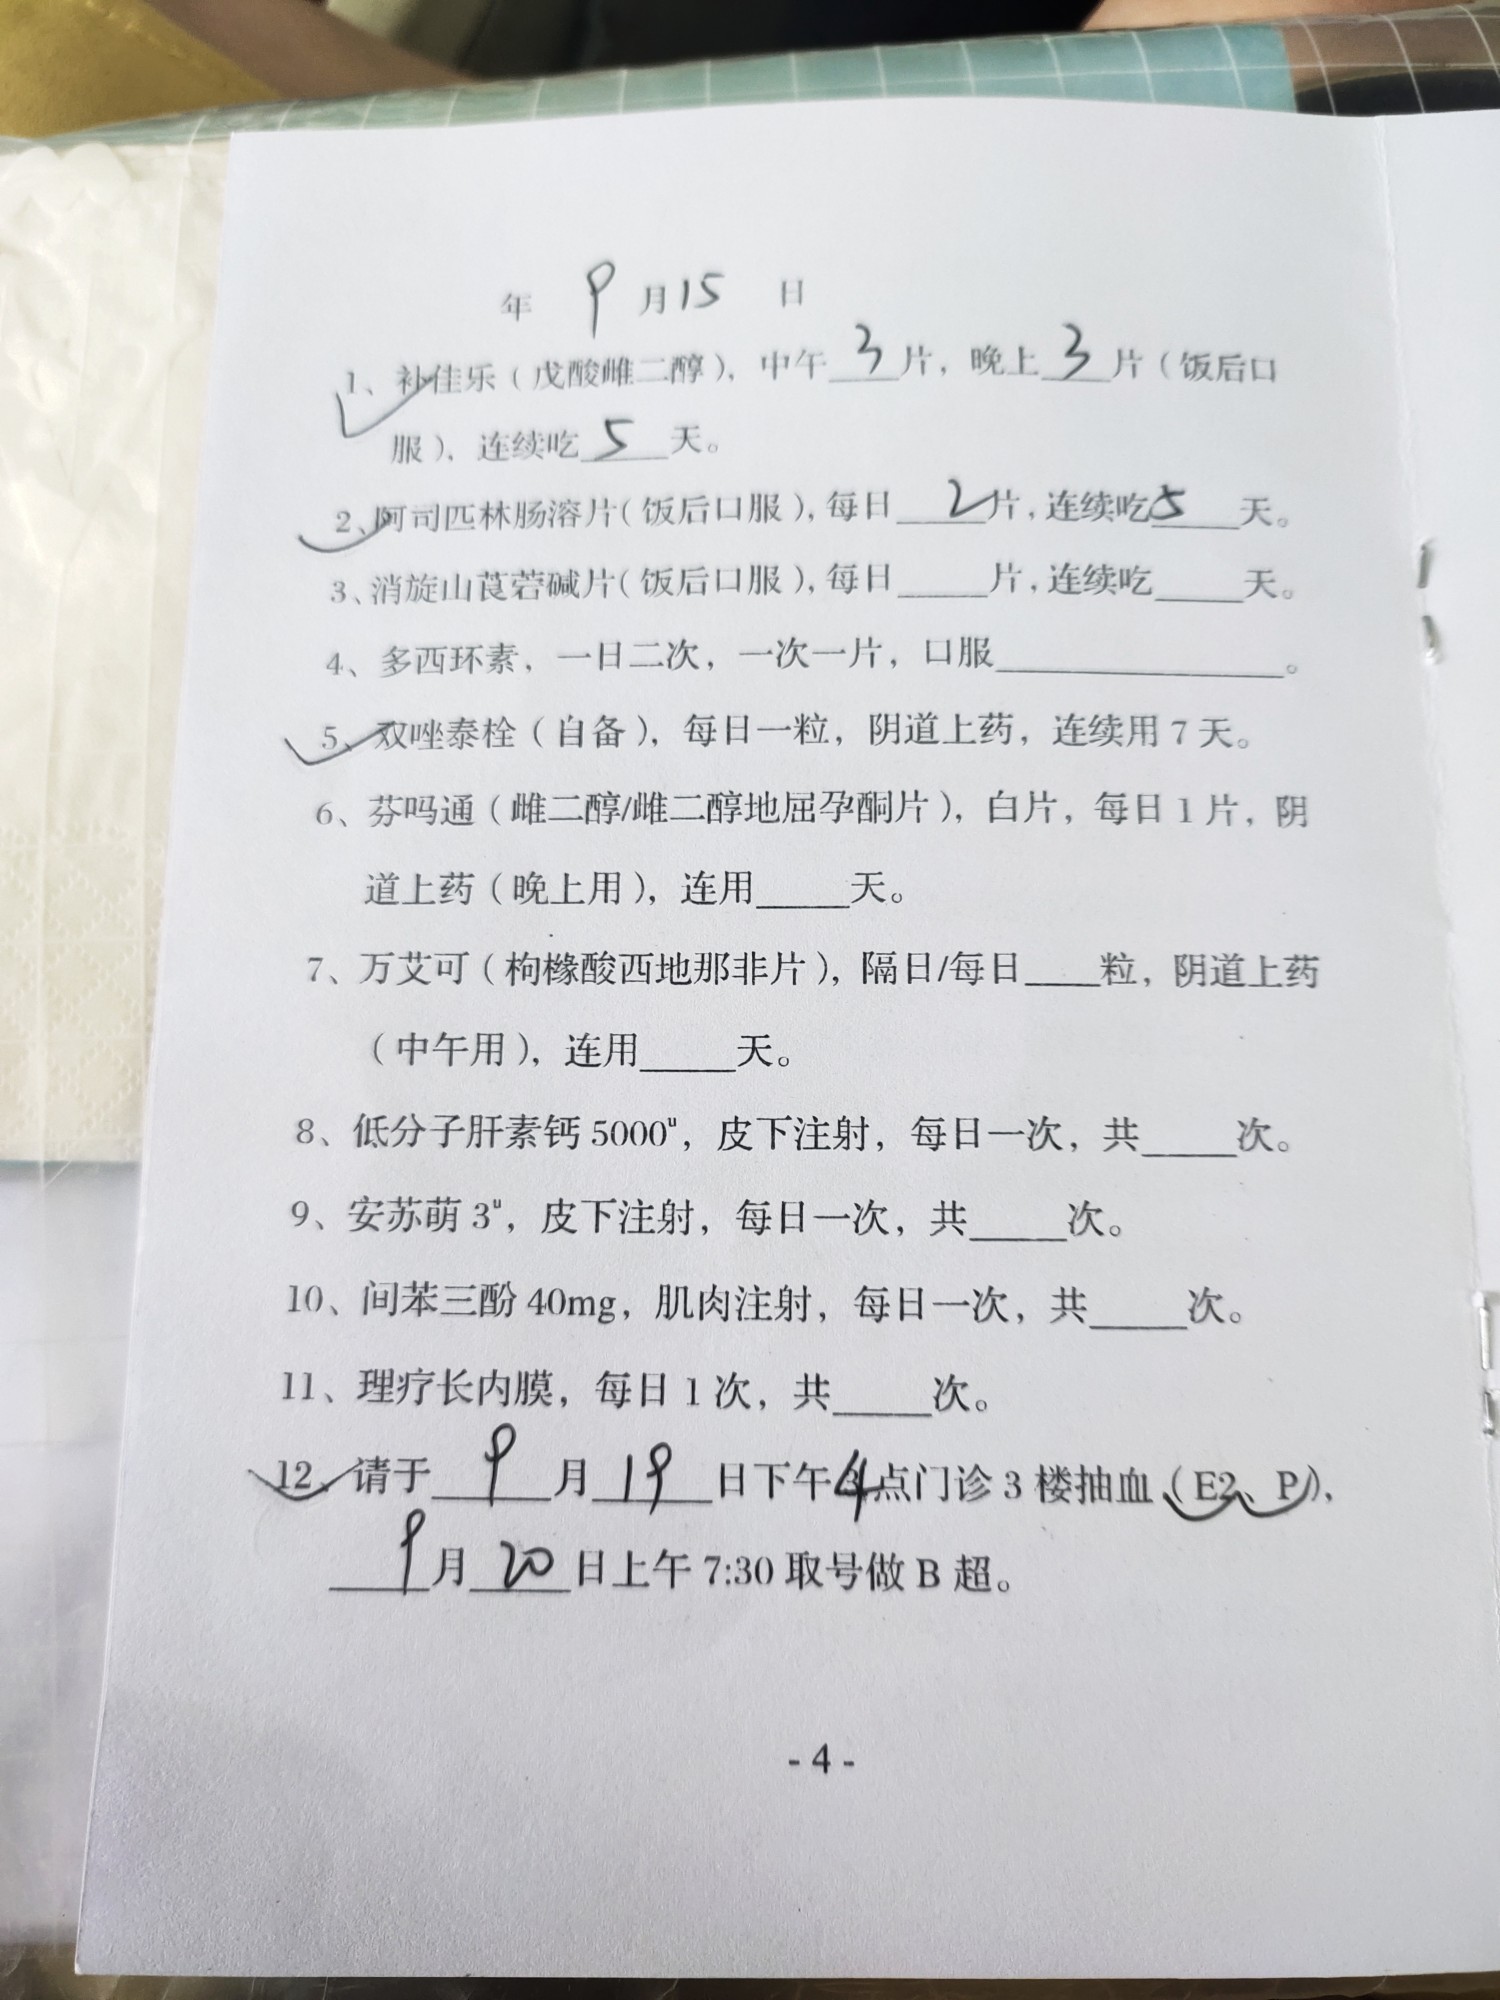 年 9 月 15 日
1、补佳乐（戊酸雌二醇），中午 3 片，晚上 3 片（饭后口
服），连续吃 5 天。
2、阿司匹林肠溶片（饭后口服），每日 2 片，连续吃 5 天。
3、消旋山莨菪碱片（饭后口服），每日____片，连续吃____天。
4、多西环素，一日二次，一次一片，口服____________。
5、双唑泰栓（自备），每日一粒，阴道上药，连续用 7 天。
6、芬吗通（雌二醇/雌二醇地屈孕酮片），白片，每日 1 片，阴
道上药（晚上用），连用____天。
7、万艾可（枸橼酸西地那非片），隔日/每日____粒，阴道上药
（中午用），连用____天。
8、低分子肝素钙 5000u，皮下注射，每日一次，共____次。
9、安苏萌 3u，皮下注射，每日一次，共____次。
10、间苯三酚 40mg，肌肉注射，每日一次，共____次。
11、理疗长内膜，每日 1 次，共____次。
12、请于 9 月 19 日下午 4 点门诊 3 楼抽血（E2、P），
9 月 20 日上午 7:30 取号做 B 超。
- 4 -